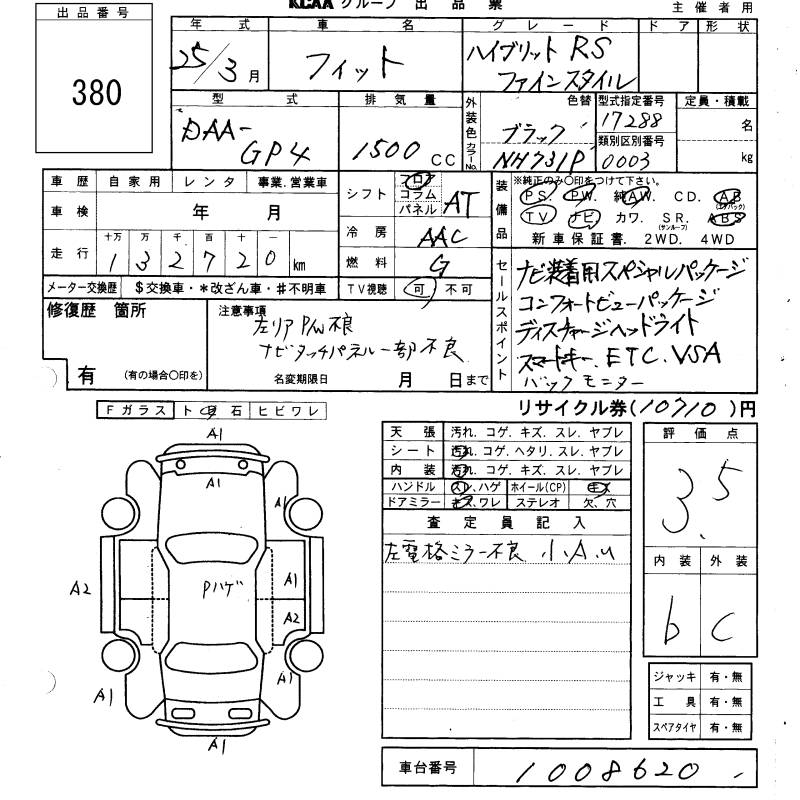 KCAA グループ 出品票 主催者用
出品番号
380
年式 車名 グレード ドア 形状
25/3月 フィット ハイブリット RS
ファインスタイル
型式 排気量 外装色 色替 型式指定番号 定員・積載
DAA- ブラック 17288 名
GP4 1500cc カラーNo. NH731P 類別区別番号 0003 kg
車歴 自家用 レンタ 事業.営業車 シフト フロア コラム パネル AT 装備品 ※純正のみ○印をつけて下さい。
PS. PW. 純AW. CD. AB(エアバック)
車検 年 月 TV ナビ カワ. SR.(サンルーフ) ABS
冷房 AAC 新車保証書. 2WD. 4WD
走行 十万 万 千 百 十 一
1 3 2 7 2 0 km 燃料 G
メーター交換歴 $交換車・*改ざん車・#不明車 TV視聴 可 不可
セールスポイント
ナビ装着用スペシャルパッケージ
コンフォートビューパッケージ
ディスチャージヘッドライト
スマートキー. ETC. VSA
バックモニター
修復歴 箇所 注意事項
左リア P/W不良
ナビタッチパネル一部不良
有 (有の場合○印を) 名変期限日 月 日まで
リサイクル券(10710)円
Fガラス ト 石 ヒビワレ
天張 汚れ. コゲ. キズ. スレ. ヤブレ
シート 汚れ. コゲ. ヘタリ. スレ. ヤブレ
内装 汚れ. コゲ. キズ. スレ. ヤブレ
ハンドル スレ.ハゲ ホイール(CP) キズ
ドアミラー キズ.ワレ ステレオ 欠. 穴
評価点
3.5
査定員記入
左電格ミラー不良 小A.U
内装 外装
b C
A1
A1
A1
A2
Pハゲ
A1
A2
A1
A1
A1
ジャッキ 有・無
工具 有・無
スペアタイヤ 有・無
車台番号 1008620